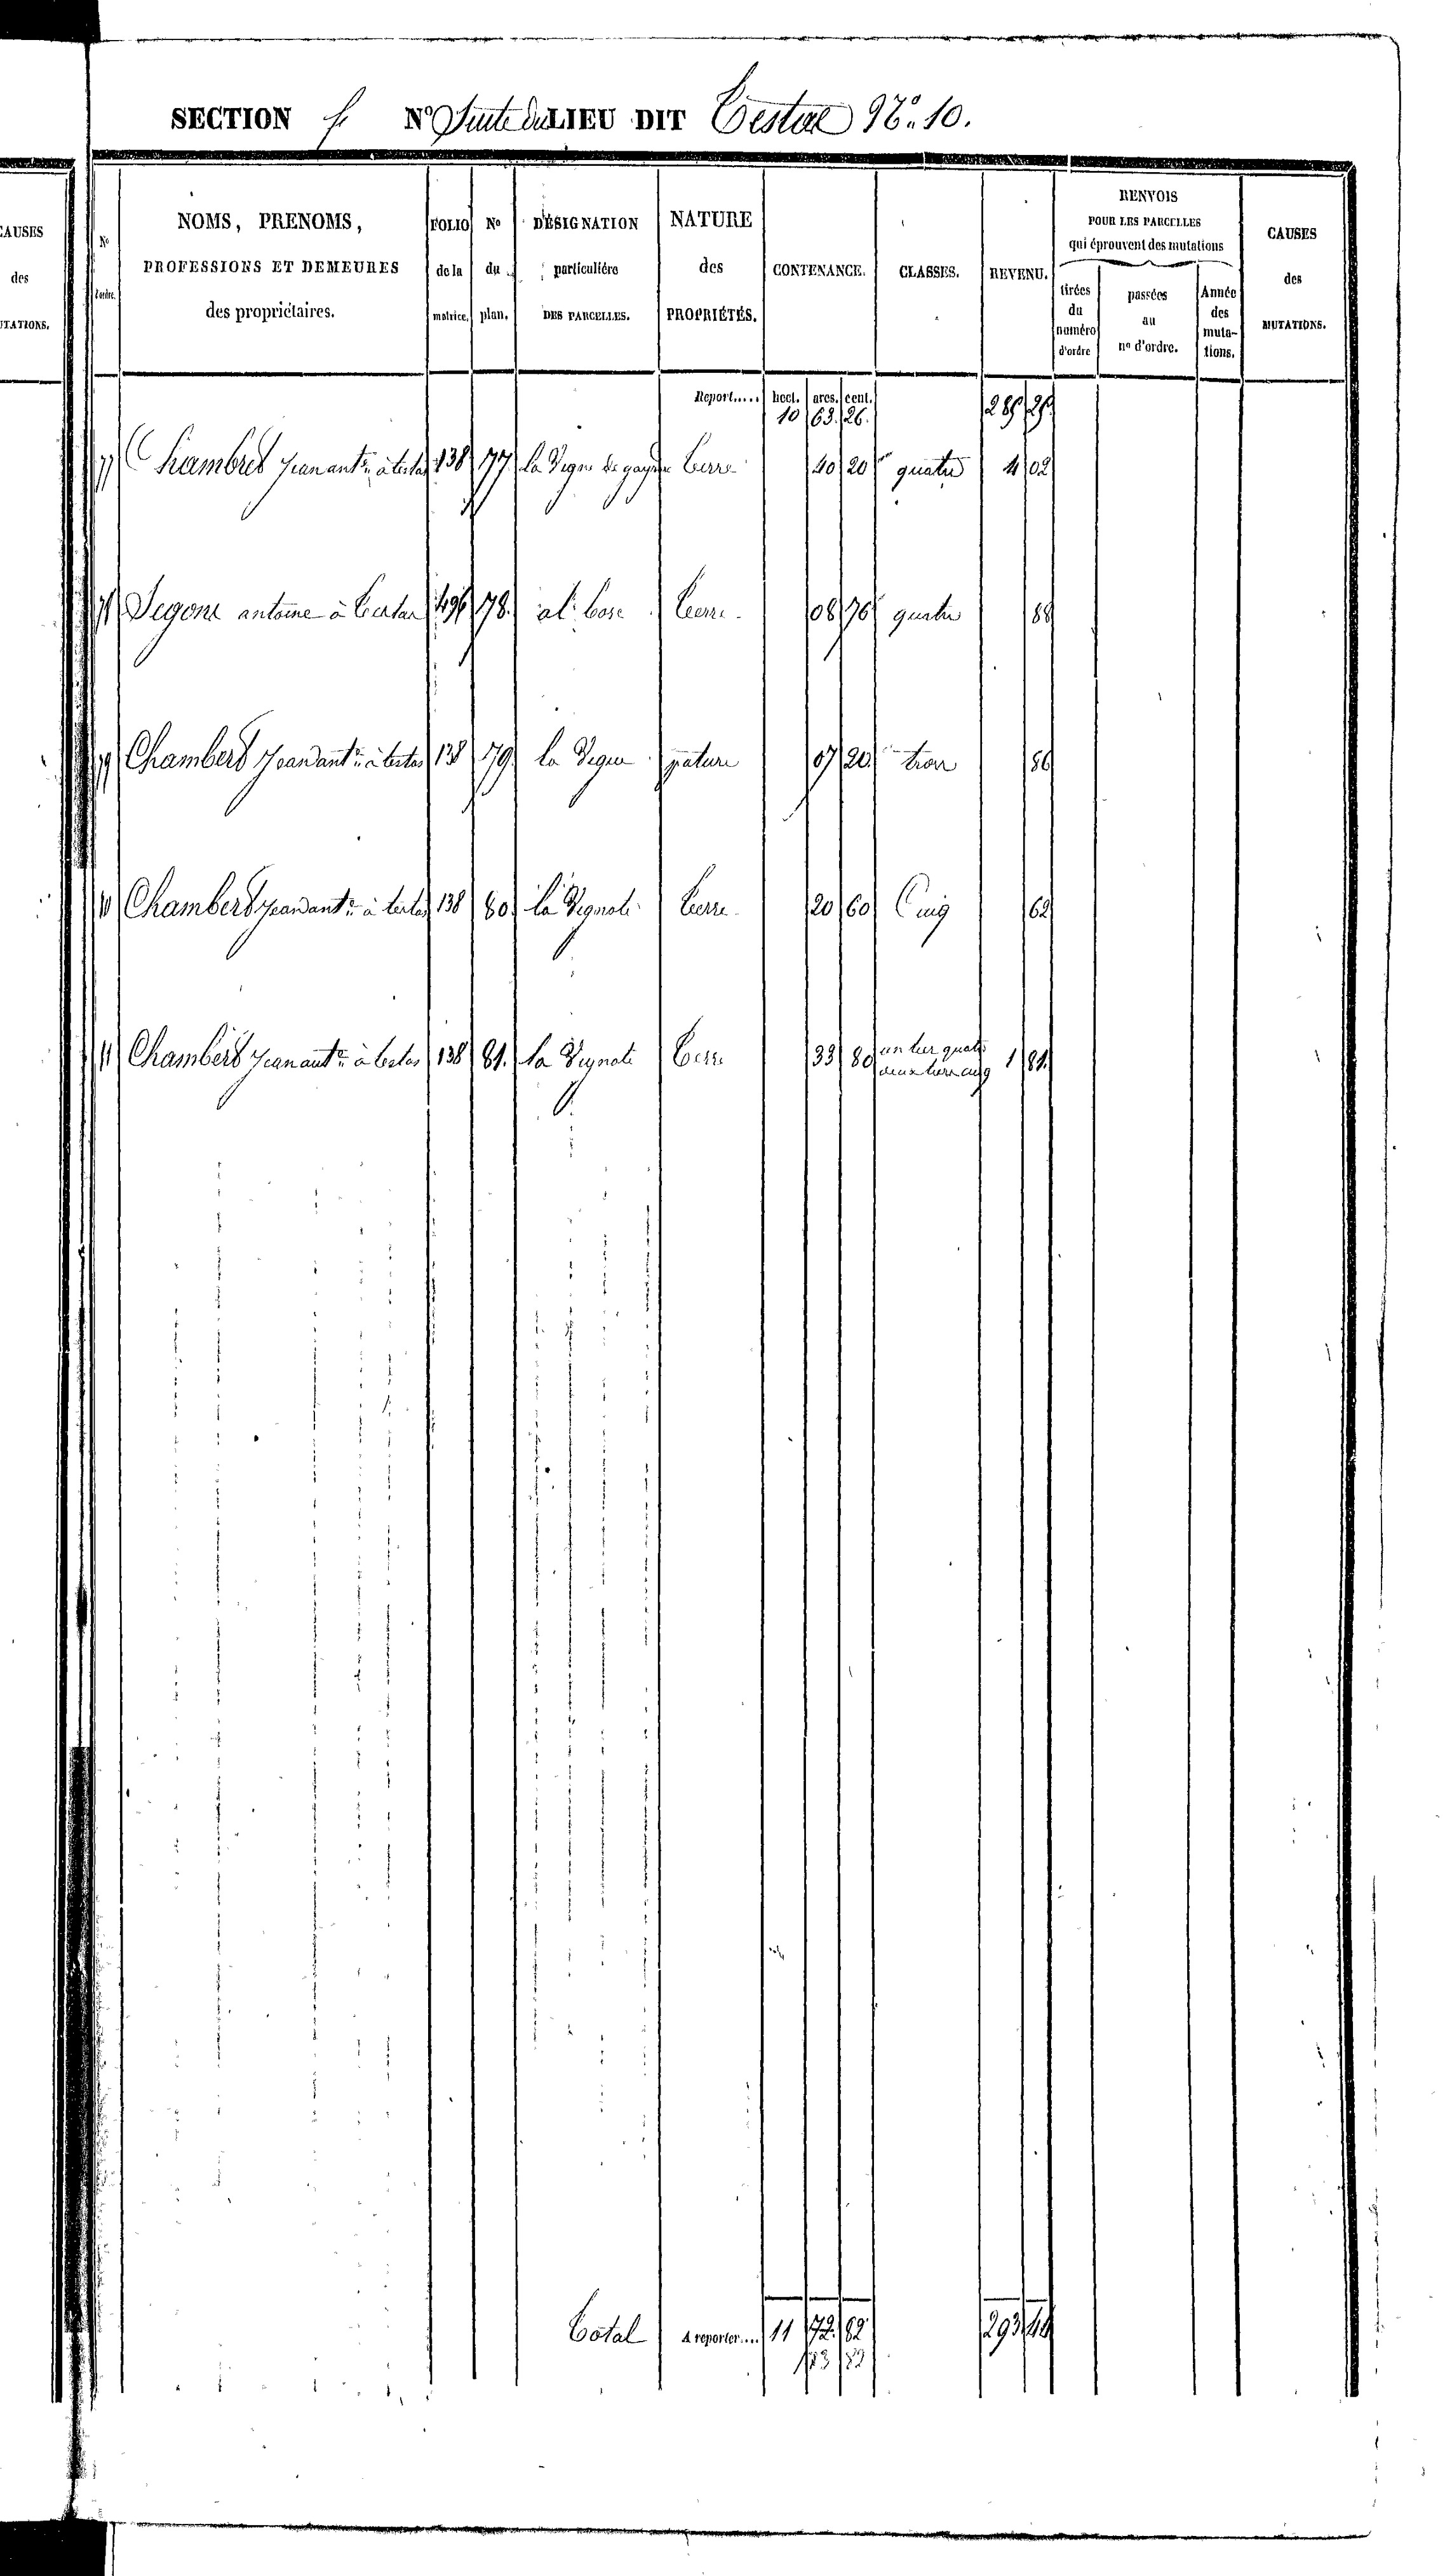 SECTION f N° Suite du LIEU DIT Testas N° 10.
CAUSES
des
MUTATIONS.
N°
d'ordre.
NOMS, PRENOMS,
PROFESSIONS ET DEMEURES
des propriétaires.
FOLIO
de la
matrice.
No
du
plan.
DÉSIGNATION
particulière
DES PARCELLES.
NATURE
des
PROPRIÉTÉS.
CONTENANCE.
CLASSES.
REVENU.
RENVOIS
POUR LES PARCELLES
qui éprouvent des mutations
tirées
du
numéro
d'ordre
passées
au
no d'ordre.
Année
des
muta-
tions.
CAUSES
des
MUTATIONS.
Report..... hect. ares. cent.
10 63. 26. 289 25
77 Chambert Jean ant.ne à testas 138 77 la Vigne de Terre 40 20 quatre 4 02
78 Segond antoine à Testas 496 78. al bosc Terre 08 76 quatre 88
79 Chambert Jean ant.ne à testas 138 79 la Vigne pature 07 20 trois 86
80 Chambert Jean ant.ne à testas 138 80. la Vignole Terre 20 60 Cinq 62
81 Chambert Jean ant.ne à testas 138 81. la Vignole Terre 33 80 un tier quatre 1 81.
deux tiers cinq
Total A reporter.... 11 73. 82 293 44